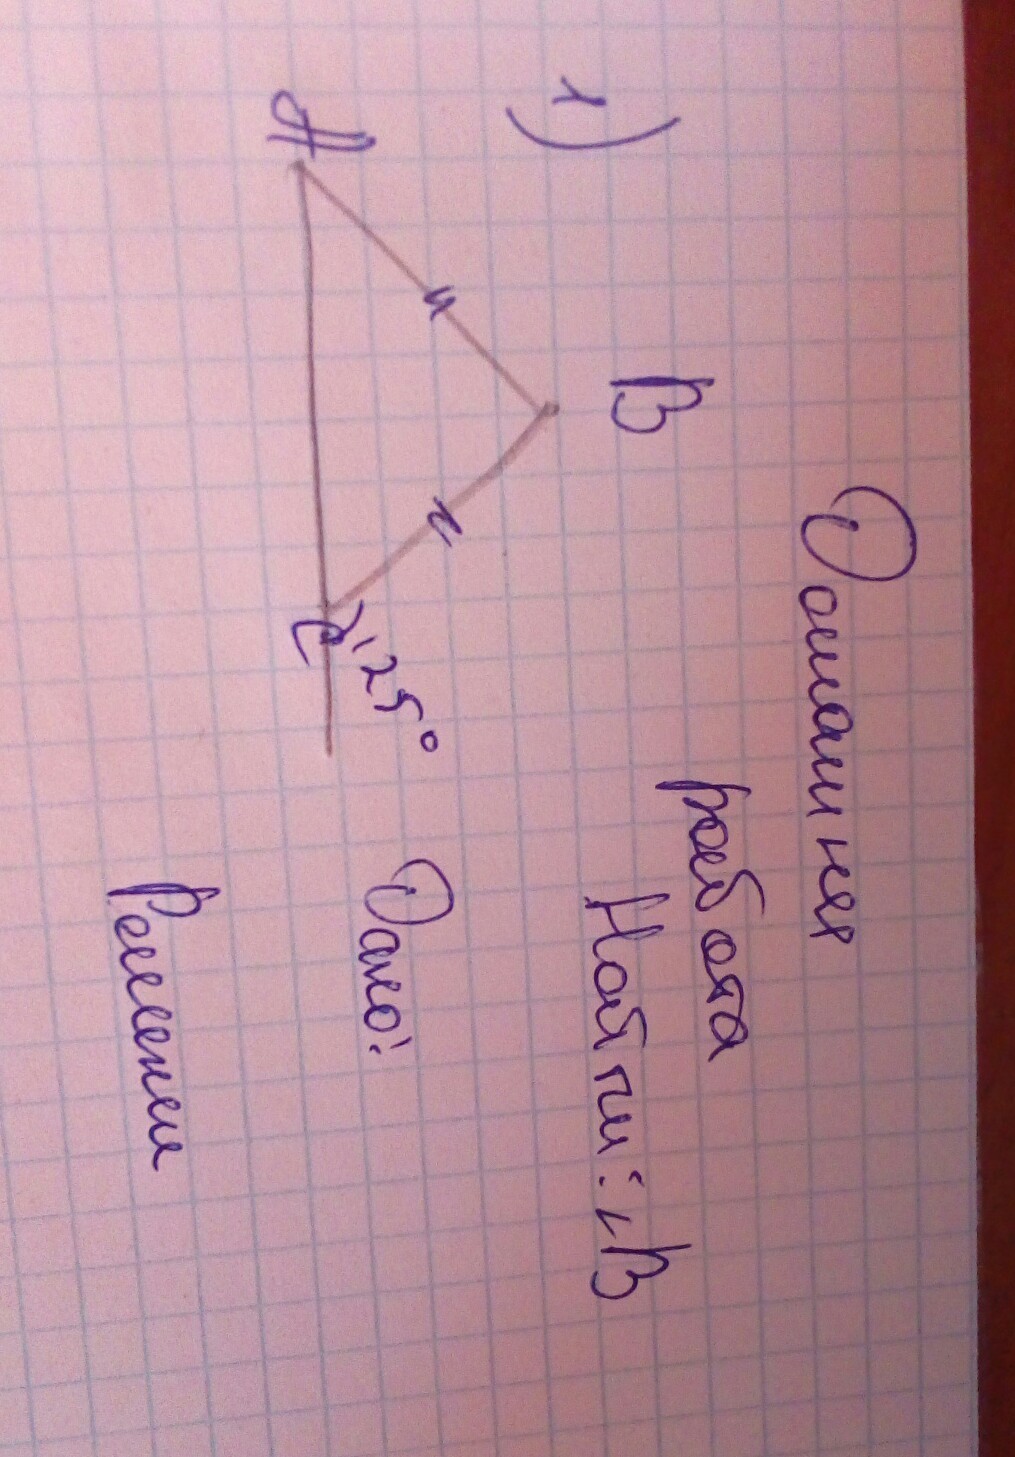 Домашняя
работа
1)
B
Найти: ∠B
A
C
125°
Дано:
Решении